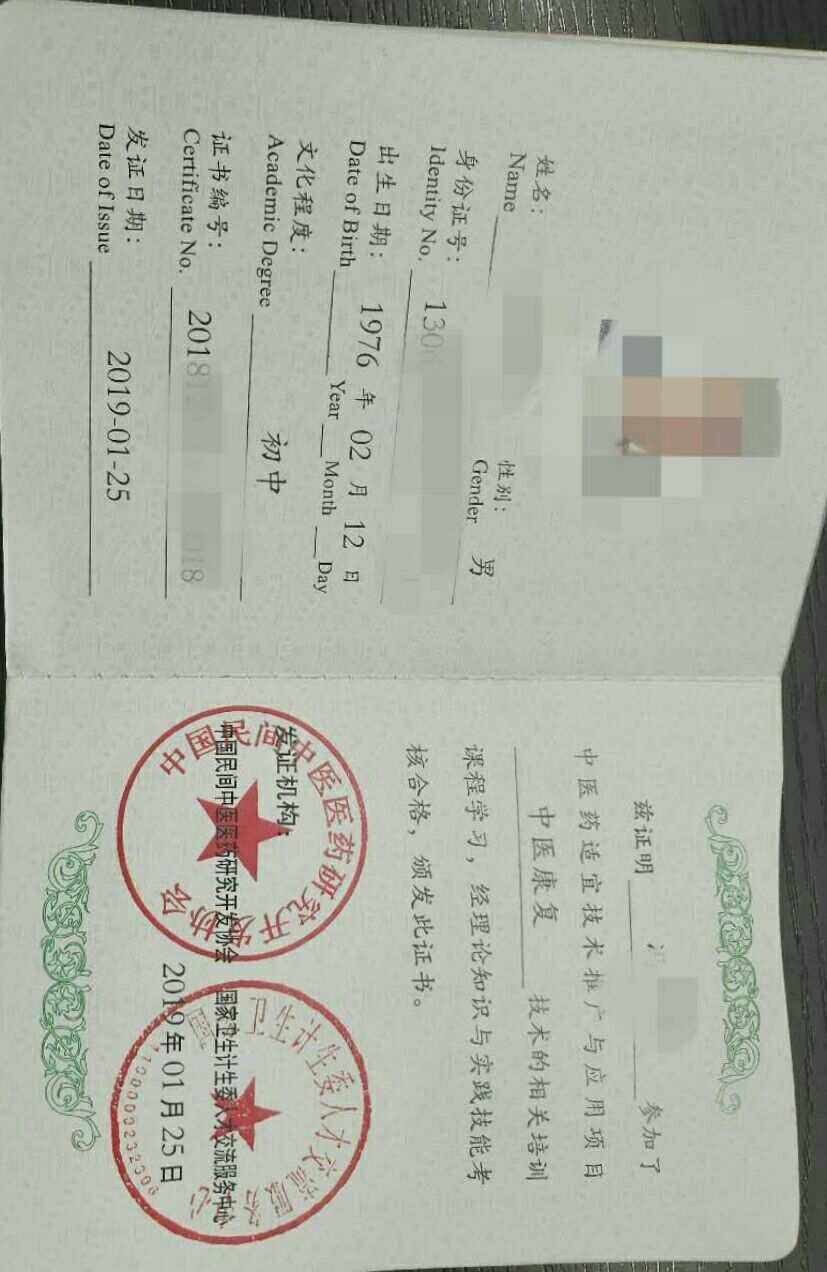 姓名：
Name
性别： 男
Gender
身份证号： 130
Identity No.
出生日期： 1976 年 02 月 12 日
Date of Birth Year Month Day
文化程度： 初中
Academic Degree
证书编号： 2018 018
Certificate No.
发证日期： 2019-01-25
Date of Issue
兹证明 参加了
中医药适宜技术推广与应用项目
中医康复 技术的相关培训
课程学习，经理论知识与实践技能考
核合格，颁发此证书。
发证机构：
中国民间中医医药研究开发协会 国家卫生计生委人才交流服务中心
2019年01月25日
中国民间中医医药研究开发协会